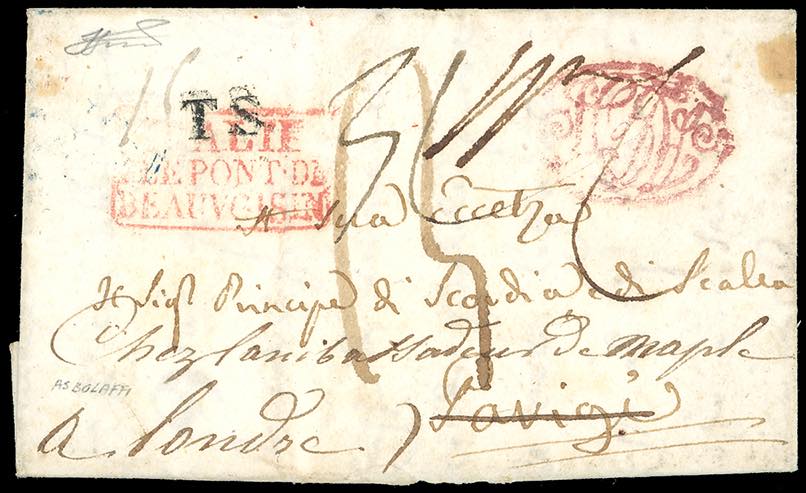 T S
ALIE
LE PONT-DE
BEAUVOISIN
A Sua Eccellza
Il Sigr Principe di Scordia e di Scalea
Chez l'ambassadeur de Naple
AS BOLAFFI
a Londre Parigi